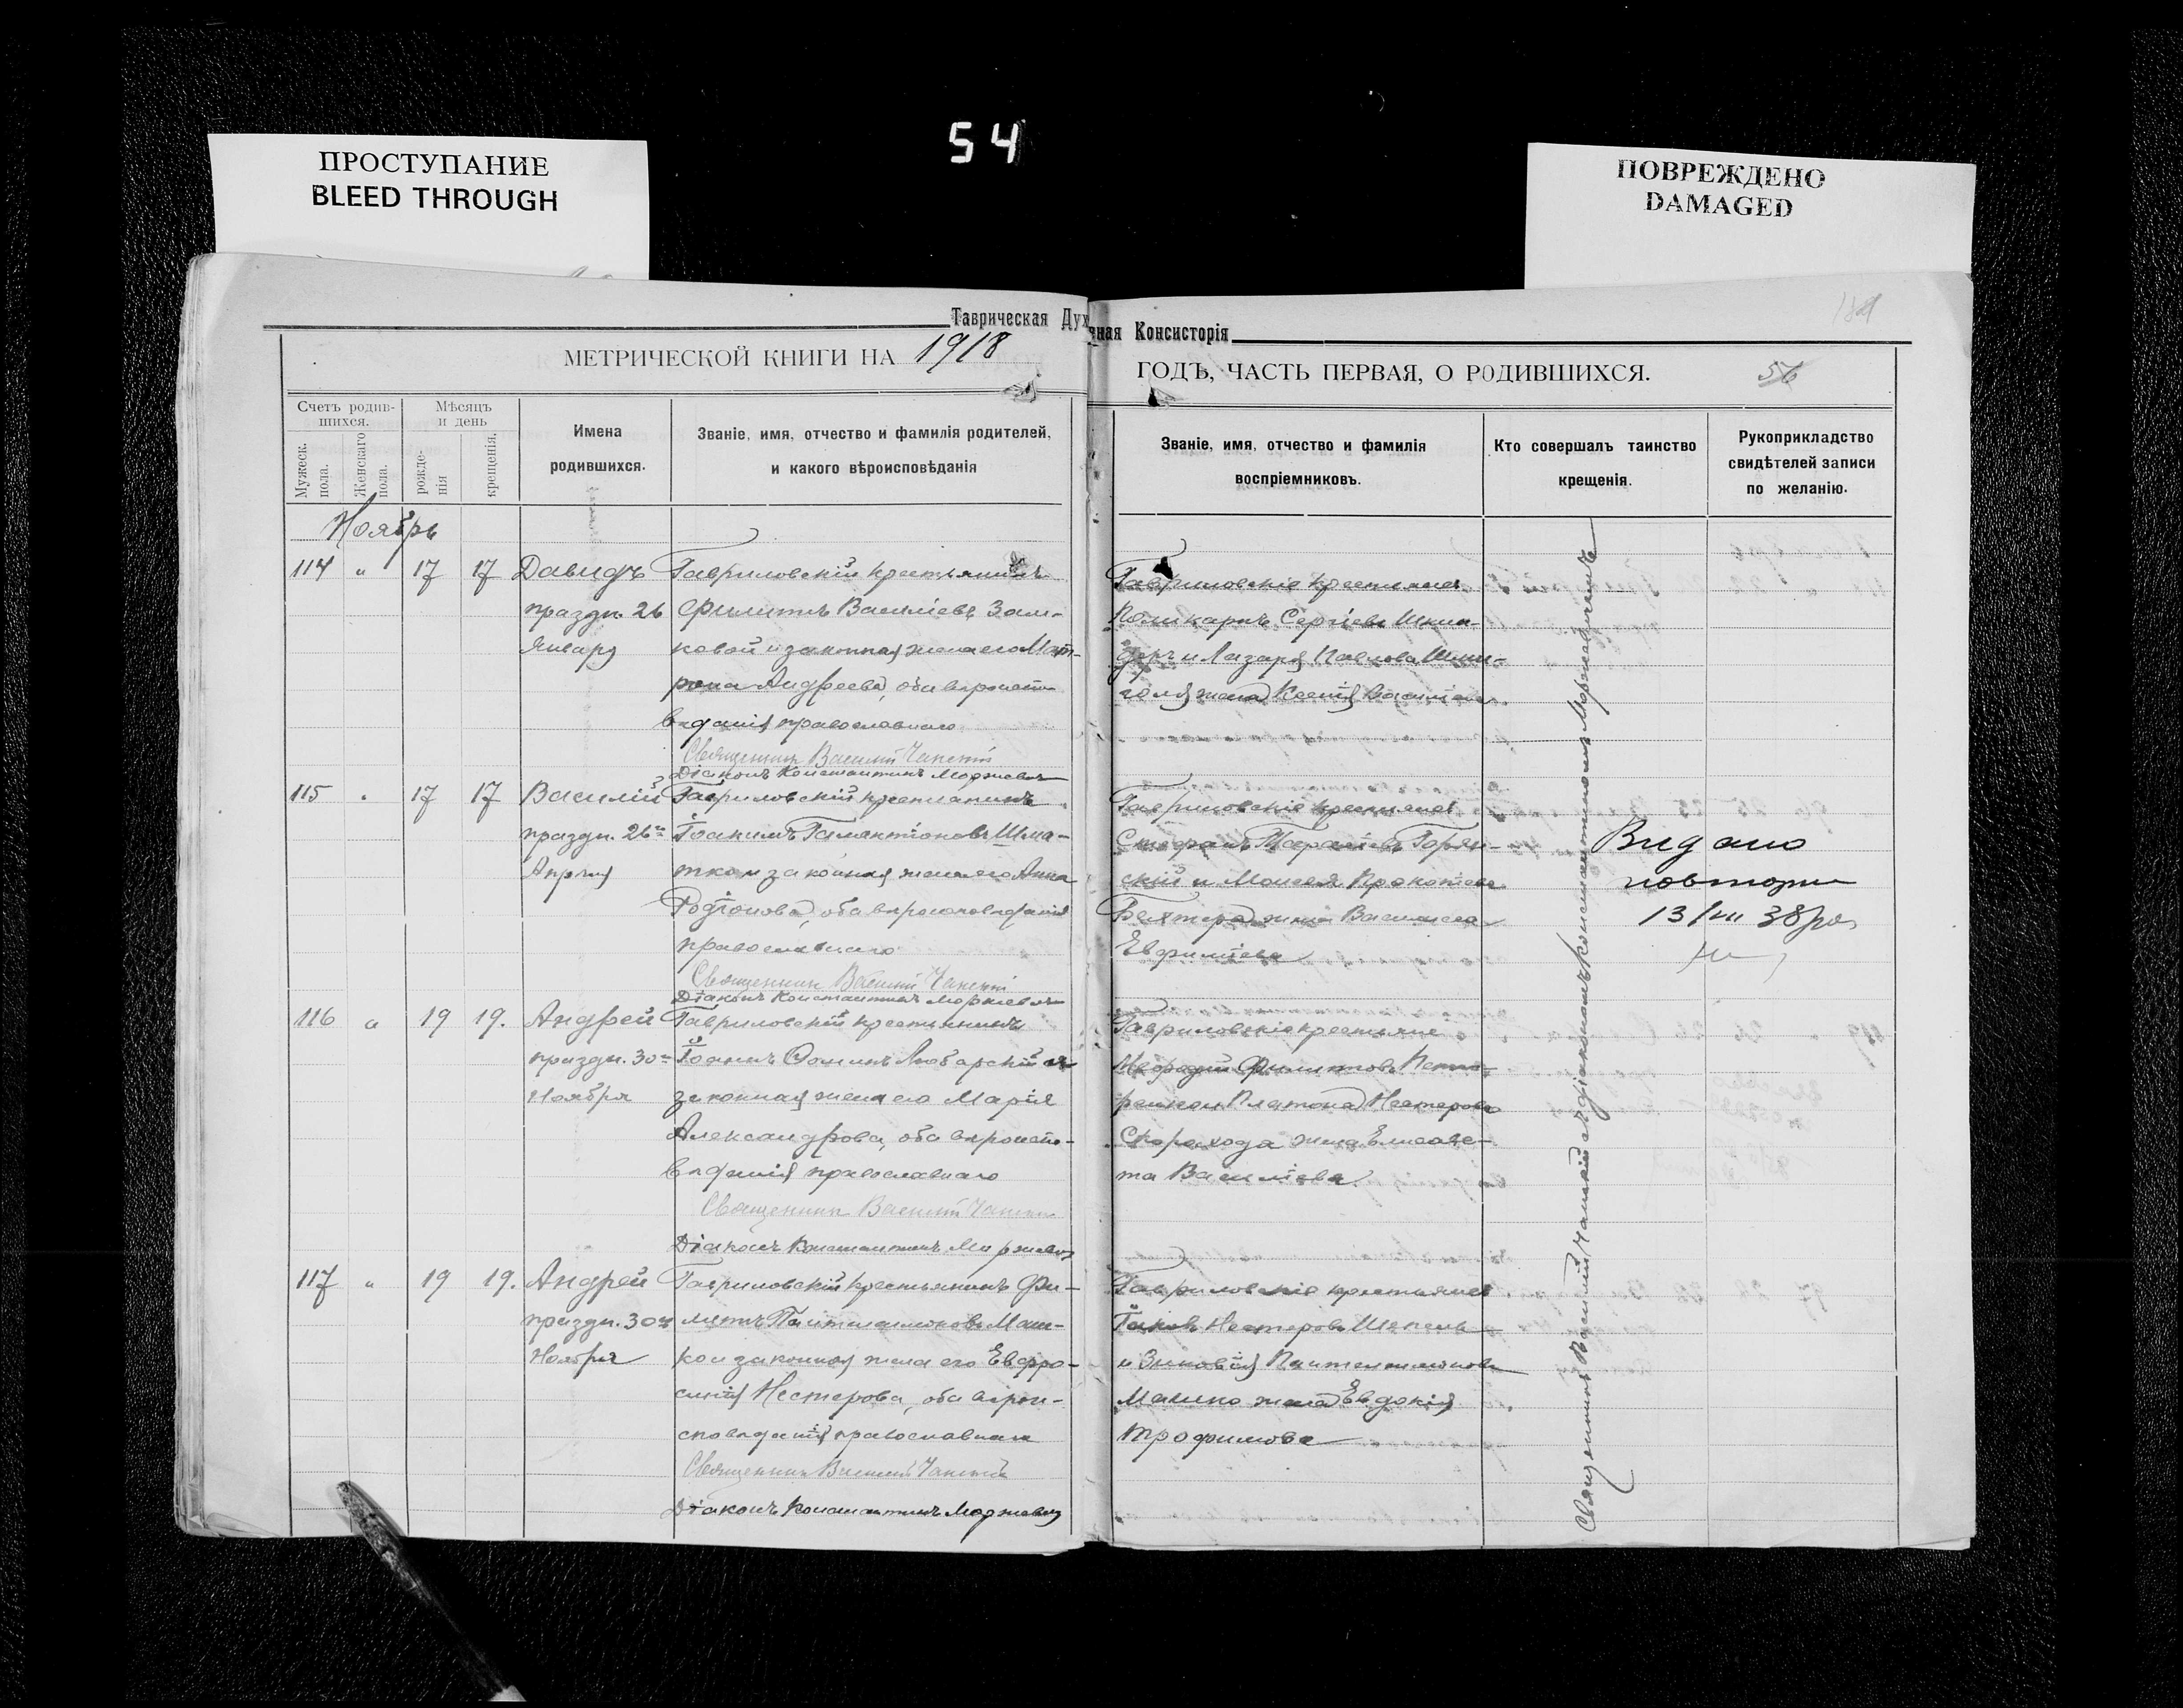 54
ПРОСТУПАНИЕ
BLEED THROUGH
ПОВРЕЖДЕНО
DAMAGED
Таврическая Дух
вная Консисторія
МЕТРИЧЕСКОЙ КНИГИ НА 1918
ГОДЪ, ЧАСТЬ ПЕРВАЯ, О РОДИВШИХСЯ.
56
Счетъ родив-
шихся.
Мужеск.
пола.
Женскаго
пола.
Мѣсяцъ
и день
рожде-
нія
крещенія.
Имена
родившихся.
Званіе, имя, отчество и фамилія родителей,
и какого вѣроисповѣданія
Званіе, имя, отчество и фамилія
воспріемниковъ.
Кто совершалъ таинство
крещенія.
Рукоприкладство
свидѣтелей записи
по желанію.
Ноябрь
114 " 17 17 Давидъ
праздн. 26
Января
Гавриловскій крестьянинъ
Филиппъ Василіевъ Зам-
ковой и законная жена его Мат-
рона Андреева, оба вѣроиспо-
вѣданія православнаго
Священникъ Василій
Діаконъ Константинъ Моржевичъ
Гавриловскіе крестьяне
Поликарпъ Сергіевъ
и Лазаря Павлова
жена Ксенія Василіева.
115 " 17 17 Василій
праздн. 26го
Апрѣля
Гавриловскій крестьянинъ
Іоакимъ Галактіоновъ Шма-
тко и законная жена его Анна
Родіонова, оба вѣроисповѣданія
православнаго
Священникъ Василій
Діаконъ Константинъ Моржевичъ
Гавриловскіе крестьяне
Стефанъ
скій и Моисея Прокопіева
жена Василиса
Евфиміева
Видано
повторно
13/III 38 р.
116 " 19 19. Андрей
праздн. 30го
Ноября
Гавриловскій крестьянинъ
Іоаннъ Ѳоминъ Любарскій и
законная жена его Марія
Александрова, оба вѣроиспо-
вѣданія православнаго
Священникъ Василій
Діаконъ Константинъ Моржевичъ
Гавриловскіе крестьяне
Филипповъ Несте-
ренко и Платона Нестерова
Скорохода жена Елисаве-
та Василіева
117 " 19 19. Андрей
праздн. 30го
Ноября
Гавриловскій крестьянинъ Фи-
липпъ Пантелеимоновъ Маш-
ко и законная жена его Евфро-
синія Нестерова, оба вѣрои-
сповѣданія православнаго
Священникъ Василій
Діаконъ Константинъ Моржевичъ
Гавриловскіе крестьяне
Іаковъ Нестеровъ Шепель
и Зиновія Пантелеимонова
жена Евдокія
Трофимова
Священникъ Василій съ діакономъ Константиномъ Моржевичемъ